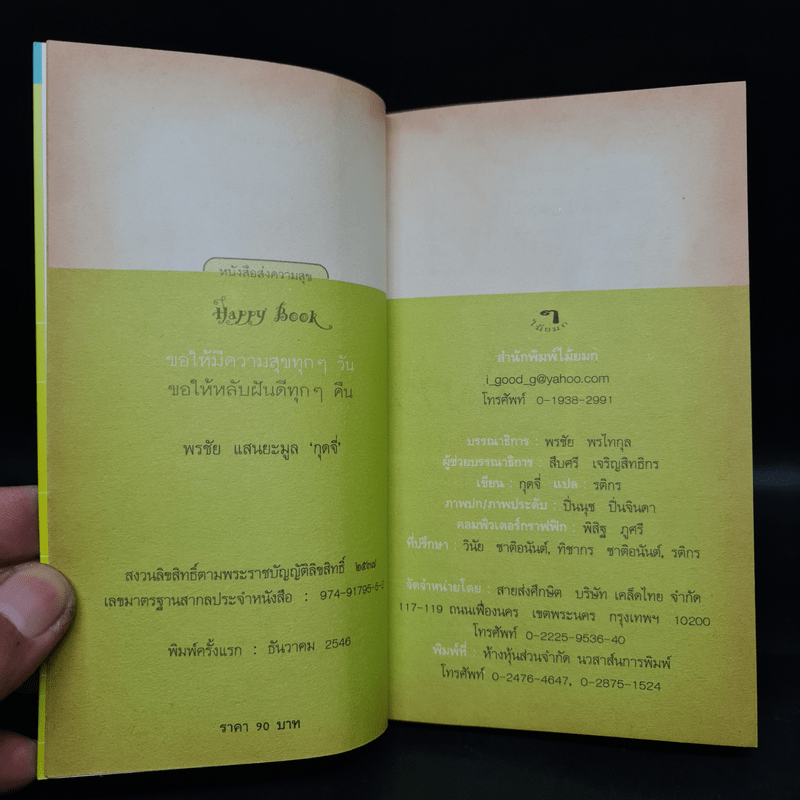 หนังสือส่งความสุข
Happy Book
ขอให้มีความสุขทุกๆ วัน
ขอให้หลับฝันดีทุกๆ คืน
พรชัย แสนยะมูล 'กุดจี่'
สงวนลิขสิทธิ์ตามพระราชบัญญัติลิขสิทธิ์ ๒๕๓๗
เลขมาตรฐานสากลประจำหนังสือ :
พิมพ์ครั้งแรก : ธันวาคม 2546
ราคา 90 บาท
ๆ
ไม้ยมก
สำนักพิมพ์ไม้ยมก
i_good_g@yahoo.com
โทรศัพท์ 0-1938-2991
บรรณาธิการ : พรชัย พรไทกุล
ผู้ช่วยบรรณาธิการ : สืบศรี เจริญสิทธิกร
เขียน : กุดจี่ แปล : รติกร
ภาพปก/ภาพประดับ : ปิ่นนุช ปิ่นจินดา
คอมพิวเตอร์กราฟฟิก : พิสิฐ ภูศรี
ที่ปรึกษา : วินัย ชาติอนันต์, ทิชากร ชาติอนันต์, รติกร
จัดจำหน่ายโดย : สายส่งศึกษิต บริษัท เคล็ดไทย จำกัด
117-119 ถนนเฟื่องนคร เขตพระนคร กรุงเทพฯ 10200
โทรศัพท์ 0-2225-9536-40
พิมพ์ที่ : ห้างหุ้นส่วนจำกัด นวสาส์นการพิมพ์
โทรศัพท์ 0-2476-4647, 0-2875-1524